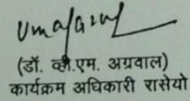 (डॉ. व्ही.एम. अग्रवाल)
कार्यक्रम अधिकारी रासेयो